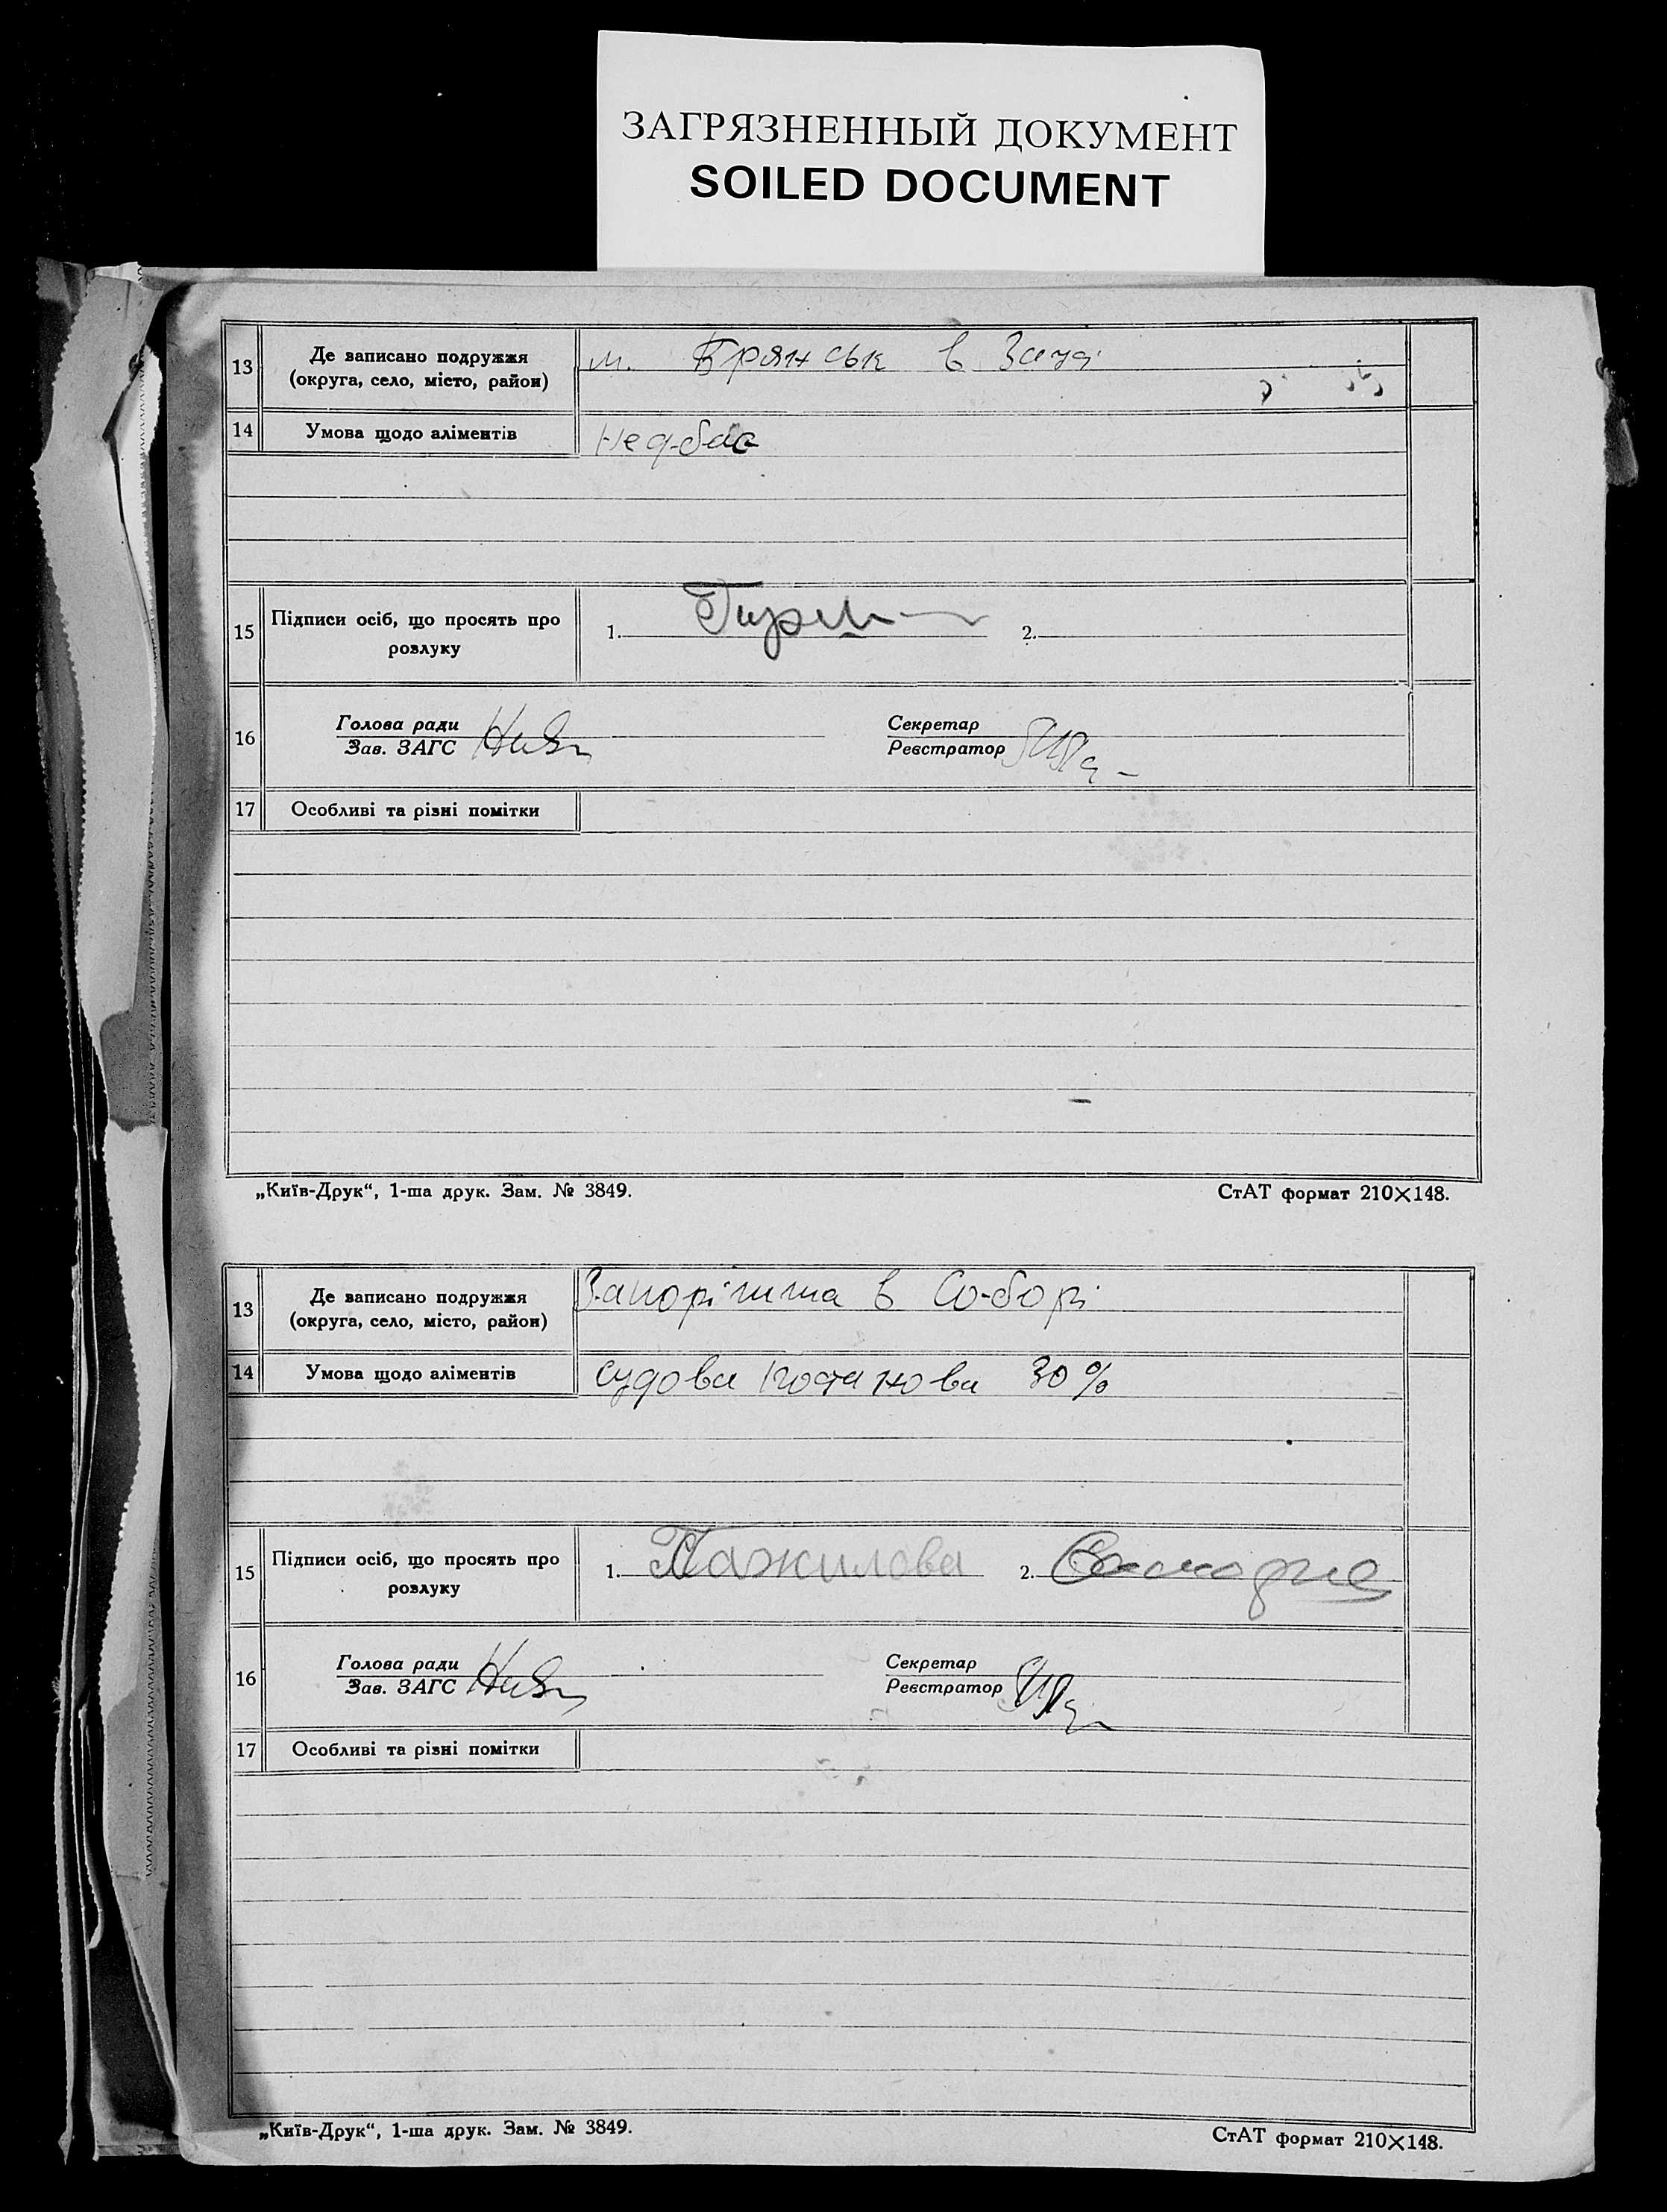 ЗАГРЯЗНЕННЫЙ ДОКУМЕНТ
SOILED DOCUMENT
13 Де записано подружжя (округа, село, місто, район) м. Брянськ в Загсі
14 Умова щодо аліментів
15 Підписи осіб, що просять про розлуку 1. 2.
16 Голова ради Секретар
Зав. ЗАГС Реєстратор
17 Особливі та різні помітки
„Київ-Друк“, 1-ша друк. Зам. № 3849. СтАТ формат 210×148.
13 Де записано подружжя (округа, село, місто, район) в Соборі
14 Умова щодо аліментів судова постанова 30%
15 Підписи осіб, що просять про розлуку 1. 2.
16 Голова ради Секретар
Зав. ЗАГС Реєстратор
17 Особливі та різні помітки
„Київ-Друк“, 1-ша друк. Зам. № 3849. СтАТ формат 210×148.